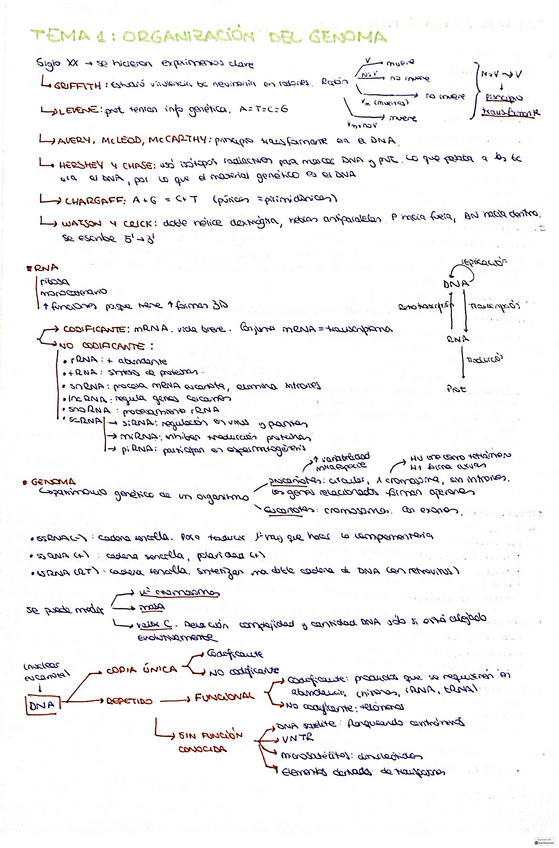 TEMA 1: ORGANIZACIÓN DEL GENOMA
Siglo XX → se hicieron experimentos clave
↳ GRIFFITH: Estudió virulencia bc neumonía en ratones. Ratón
V → muere
NoV → no muere
Vm (muertas) → no muere
Vm+NoV → muere
NoV → V
↓
Principio
transformante
↳ LEVENE: prot tenían info genética. A=T=C=G
↳ AVERY, McLEOD, McCARTHY: principio transformante era el DNA.
↳ HERSHEY Y CHASE: usó isótopos radiactivos para marcar DNA y prot. Lo que pasaba a las bc
era el DNA, por lo que el material genético es el DNA
↳ CHARGAFF: A+G = C+T (púricas = pirimidínicas)
↳ WATSON Y CRICK: doble hélice dextrógira, hebras antiparalelas. P hacia fuera, BN hacia dentro.
se escribe 5'→3'
RNA
ribosa
monocatenario
↑ funciones porque tiene ↑ formas 3D
→ CODIFICANTE: mRNA. vida breve. Conjunto mRNA = transcriptoma
→ NO CODIFICANTE:
• rRNA: + abundante
• tRNA: síntesis de proteínas
• snRNA: procesa mRNA eucariota, elimina intrones
• lncRNA: regula genes cercanos
• snoRNA: procesamiento rRNA
• scRNA → siRNA: regulación en virus y plantas
→ miRNA: inhiben traducción proteínas
→ piRNA: participan en espermatogénesis
replicación
DNA
Retrotranscripción
Transcripción
RNA
Traducción
Prot
• GENOMA
↳ patrimonio genético de un organismo
↑ variabilidad
intraespecie
procariotas: circular, 1 cromosoma, sin intrones.
los genes relacionados forman operones
eucariotas: cromosomas. Con exones.
• ssRNA(-): cadena sencilla. Para traducir 1º hay que hacer la complementaria
• ssRNA(+): cadena sencilla, polaridad (+)
• ssRNA (RT): cadena sencilla. Sintetizan una doble cadena de DNA (en retrovirus)
Se puede medir
→ nº cromosomas
→ masa
→ valor C. Relación complejidad y cantidad DNA sólo si está alejado
evolutivamente
(nuclear
eucariota)
↓
DNA
→ COPIA ÚNICA
→ Codificante
→ NO codificante
→ REPETIDO → FUNCIONAL
→ Codificante: productos que se requieren en
abundancia, (histonas, rRNA, tRNA)
→ NO codificante: telómeros
↳ SIN FUNCIÓN
CONOCIDA
→ DNA satélite: flanqueando centrómeros
→ VNTR
→ microsatélites: dinucleótidos
→ Elementos derivados de transposones